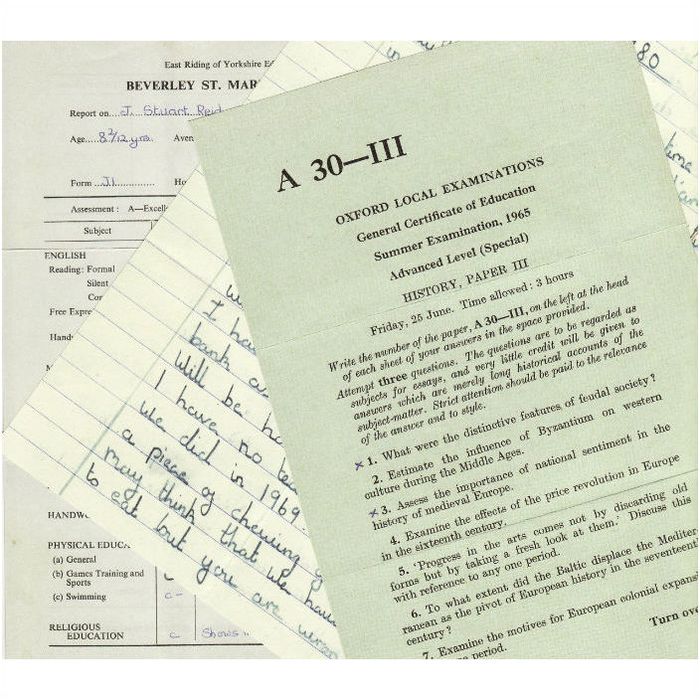 East Riding of Yorkshire
BEVERLEY ST.
Report on J. Stuart Reid
Age 8 2/12 yrs.
Form J1
Assessment : A—Excell
Subject
ENGLISH
Reading: Formal
Silent
Free Expre
PHYSICAL EDUCA
(a) General
(b) Games Training and
Sports
(c) Swimming c-
RELIGIOUS
EDUCATION c Shows
80
time
I ha
bank
will be
I have no
we did in 1969.
a piece of chewing
may think that we have
to eat but you are
A 30—III
OXFORD LOCAL EXAMINATIONS
General Certificate of Education
Summer Examination, 1965
Advanced Level (Special)
HISTORY, PAPER III
Friday, 25 June. Time allowed: 3 hours
Write the number of the paper, A 30—III, on the left at the head
of each sheet of your answers in the space provided.
Attempt three questions. The questions are to be regarded as
subjects for essays, and very little credit will be given to
answers which are merely long historical accounts of the
subject-matter. Strict attention should be paid to the relevance
of the answer and to style.
x 1. What were the distinctive features of feudal society?
2. Estimate the influence of Byzantium on western
culture during the Middle Ages.
x 3. Assess the importance of national sentiment in the
history of medieval Europe.
4. Examine the effects of the price revolution in Europe
in the sixteenth century.
5. 'Progress in the arts comes not by discarding old
forms but by taking a fresh look at them.' Discuss this
with reference to any one period.
6. To what extent did the Baltic displace the Mediter-
ranean as the pivot of European history in the seventeenth
century?
7. Examine the motives for European colonial expan
period.
Turn ove